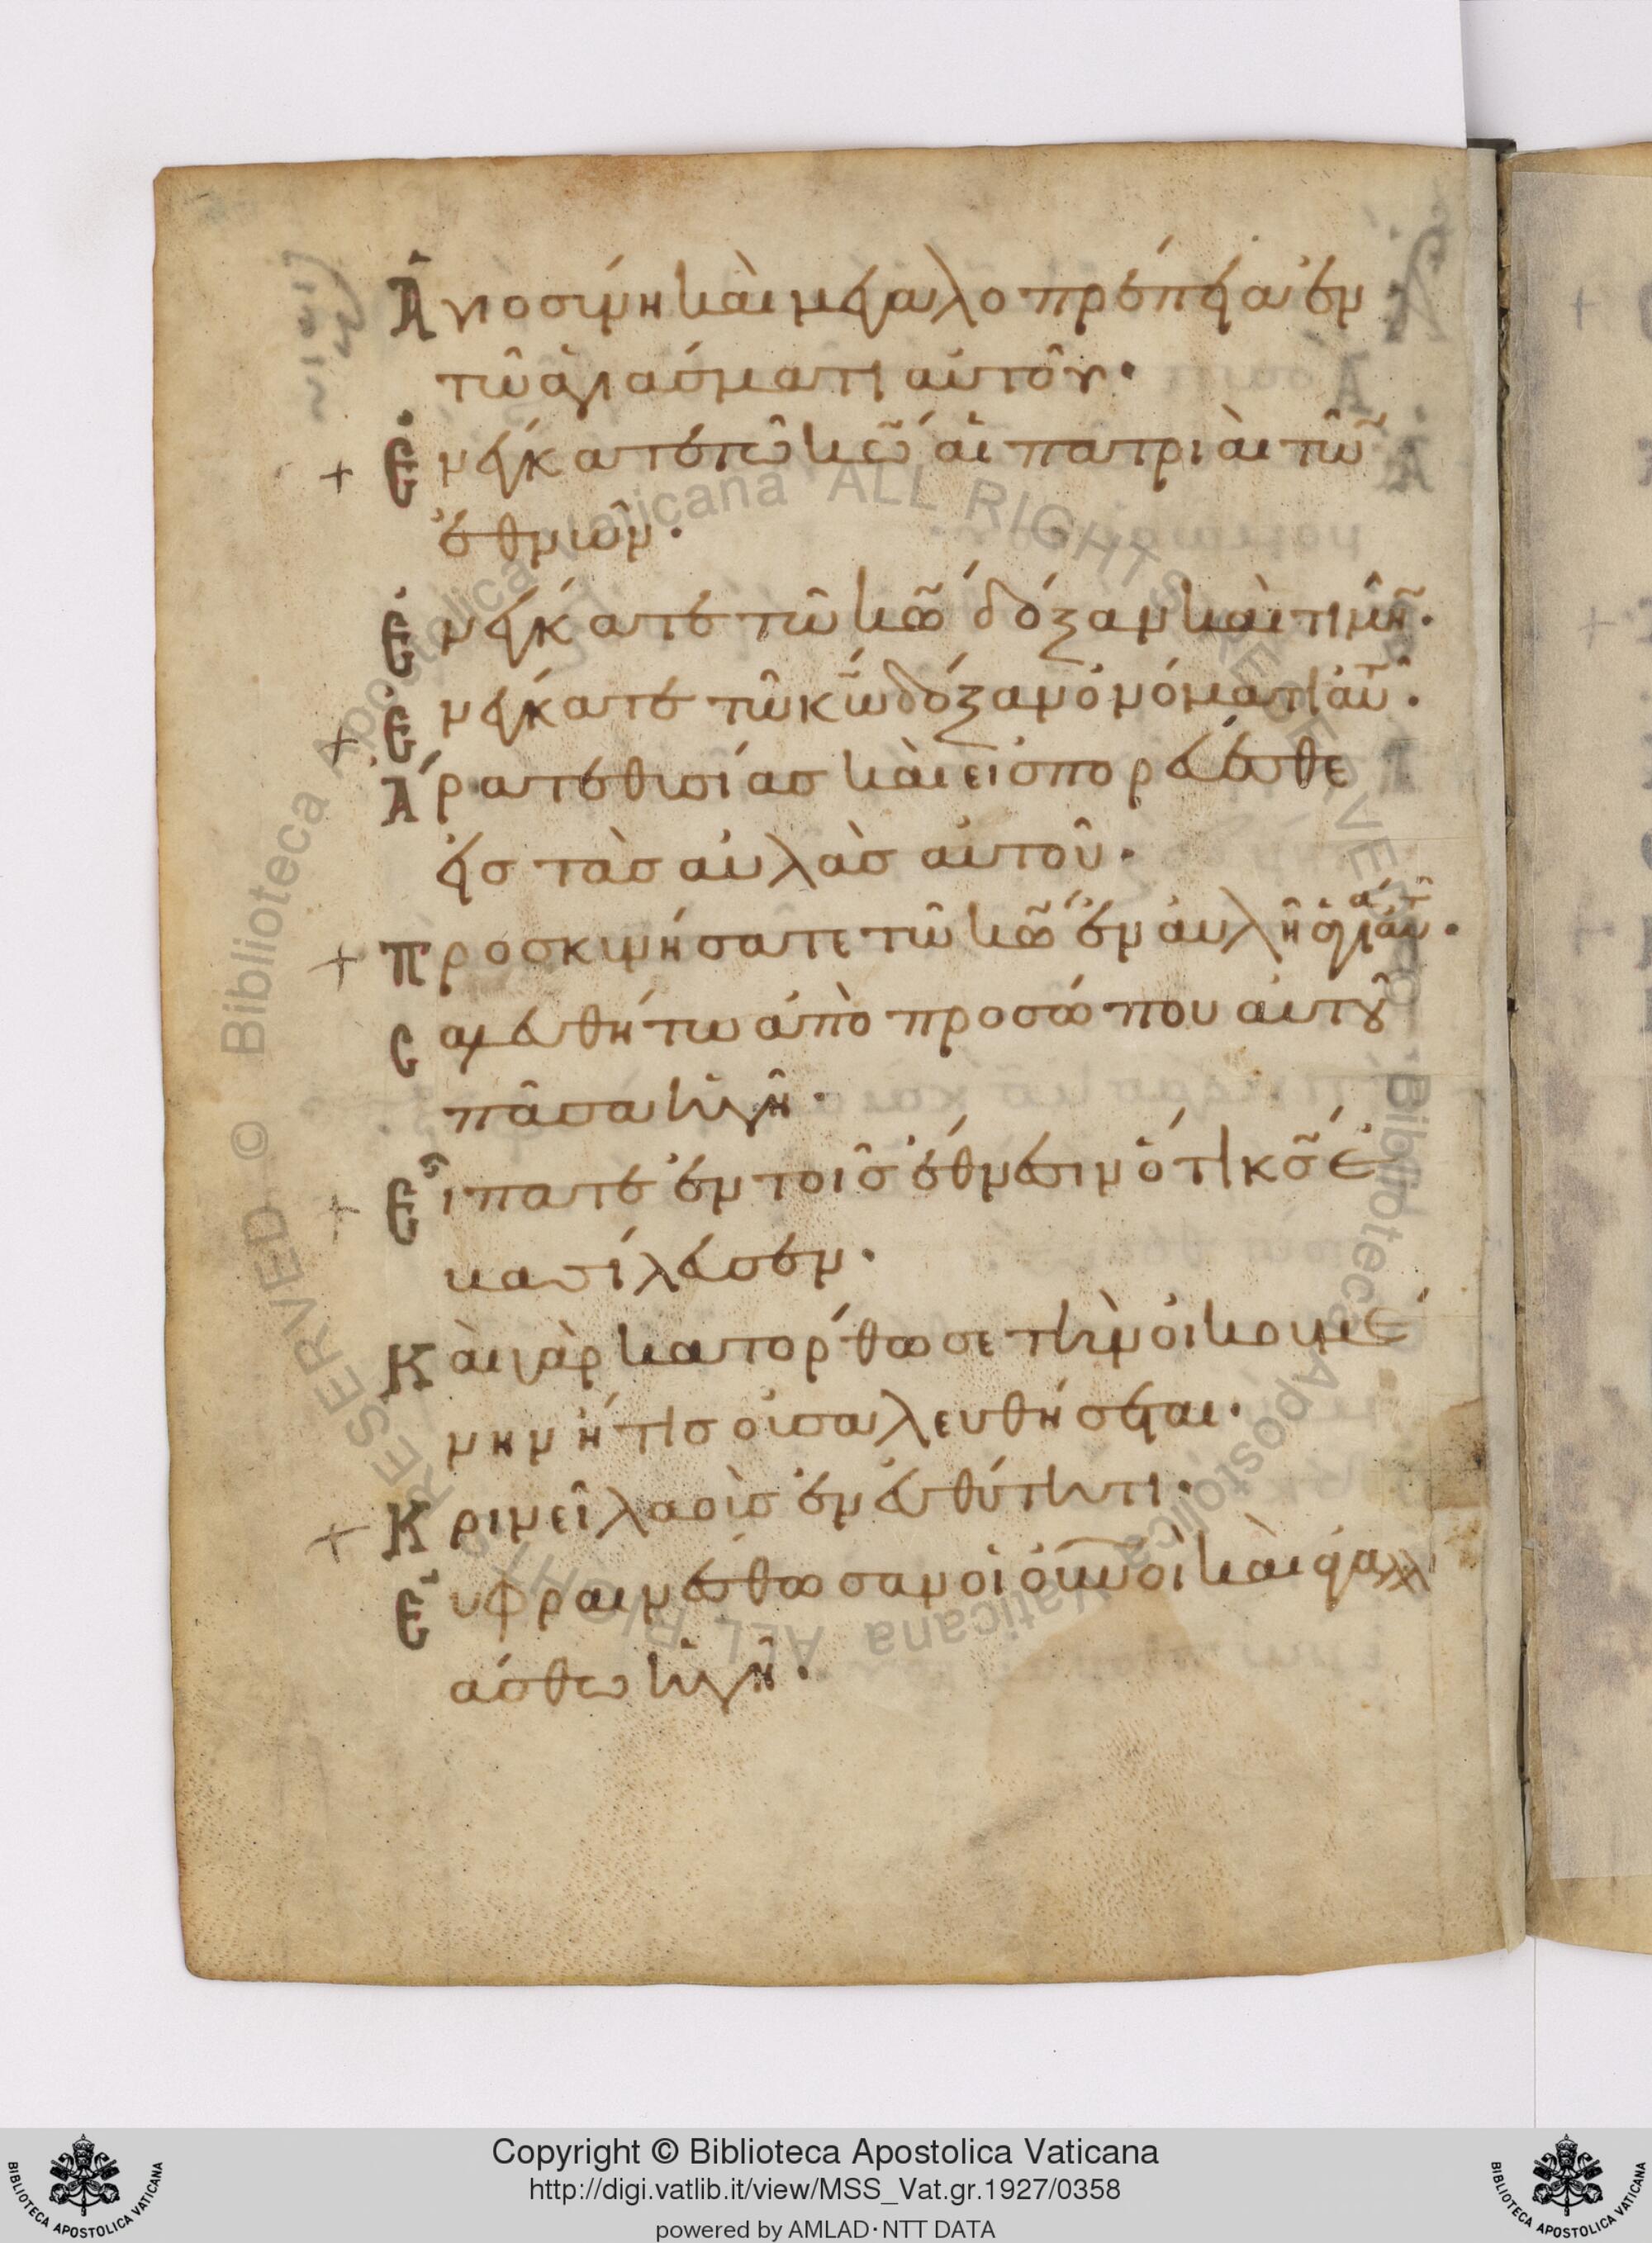 Ἁγιοσύνη καὶ μεγαλοπρέπεια ἐν
τῶ ἁγιάσματι αὐτοῦ·
+ Ἐνέγκατε τῶ κω̃ αἱ πατριαὶ τῶ̃
ἐθνῶν·
Ἐνέγκατε τῶ κω̃ δόξαν καὶ τιμή̃·
+ Ἐνέγκατε τῶ κω̃ δόξαν ὀνόματι αὐ̃·
Ἄρατε θυσίας καὶ εἰσπορεύεσθε
εἰς τὰς αὐλὰς αὐτοῦ·
+ Προσκυνήσατε τῶ κω̃ ἐν αὐλῆ ἁγία αὐ̃·
Σαλευθήτω ἀπὸ προσώπου αὐτοῦ
πᾶσα ἡ γῆ·
+ Εἴπατε ἐν τοῖς ἔθνεσιν ὅτι κς̃ ἐ
βασίλευσεν·
Καὶ γὰρ κατόρθωσε τὴν οἰκουμέ
νην ἥτις οὐ σαλευθήσεται·
+ Κρινεῖ λαοὺς ἐν εὐθύτητι·
Εὐφραινέσθωσαν οἱ οὐνοὶ καὶ ἀγαλλι
άσθω ἡ γῆ·
Copyright © Biblioteca Apostolica Vaticana
http://digi.vatlib.it/view/MSS_Vat.gr.1927/0358
powered by AMLAD·NTT DATA
BIBLIOTECA APOSTOLICA VATICANA
BIBLIOTECA APOSTOLICA VATICANA